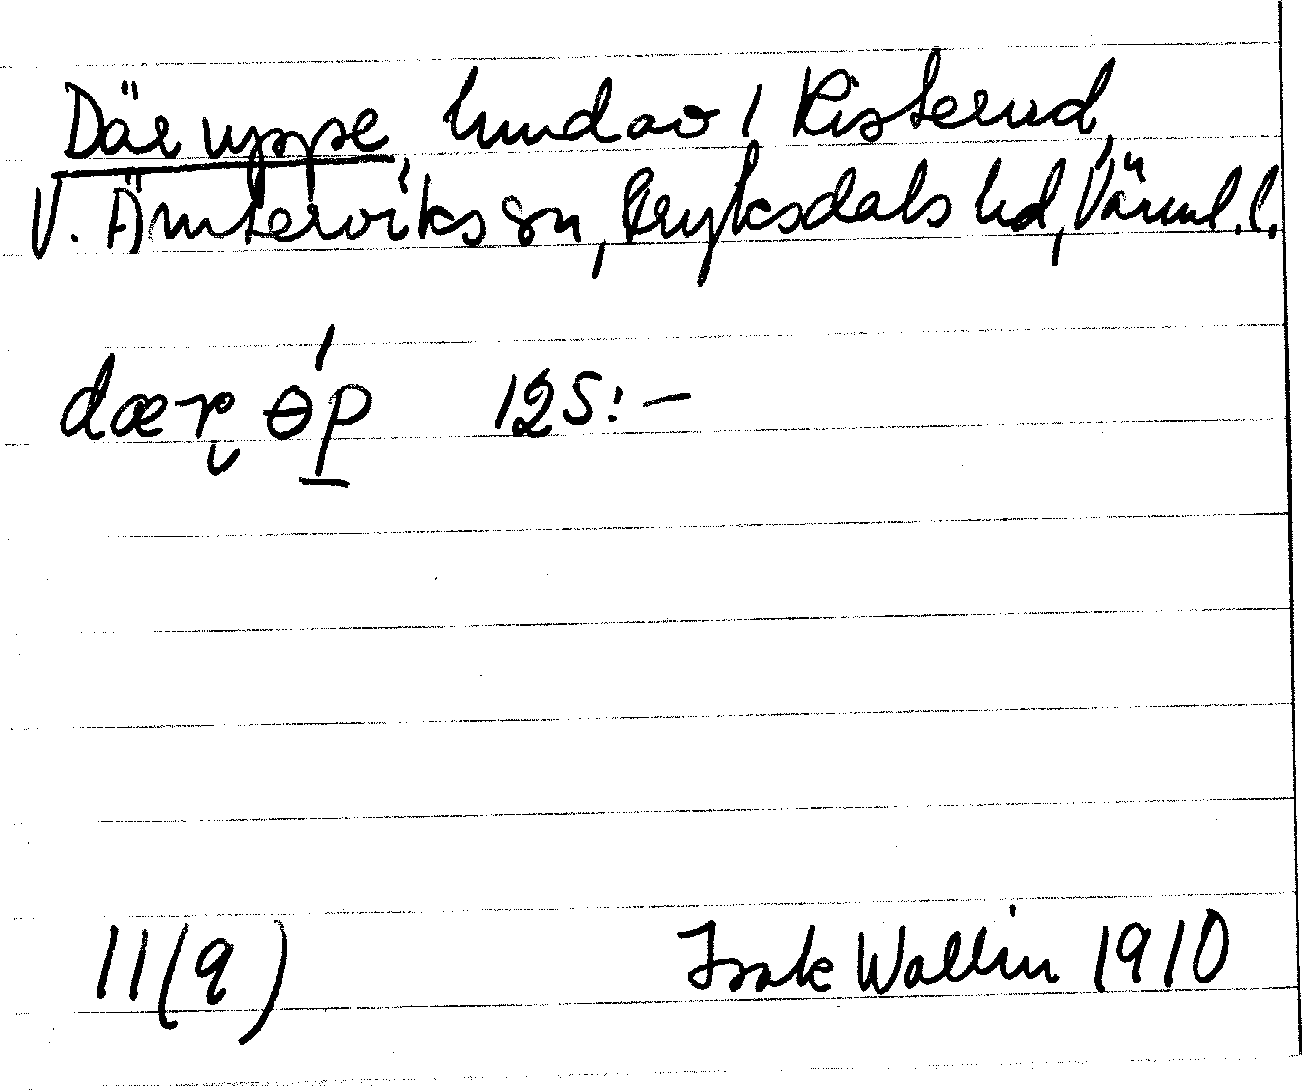 Där uppe, hmd av i Risterud,
V. Ämterviks sn, Fryksdals hd, Värml. l.
dær øp 125:-
11(9)
Isak Wallin 1910